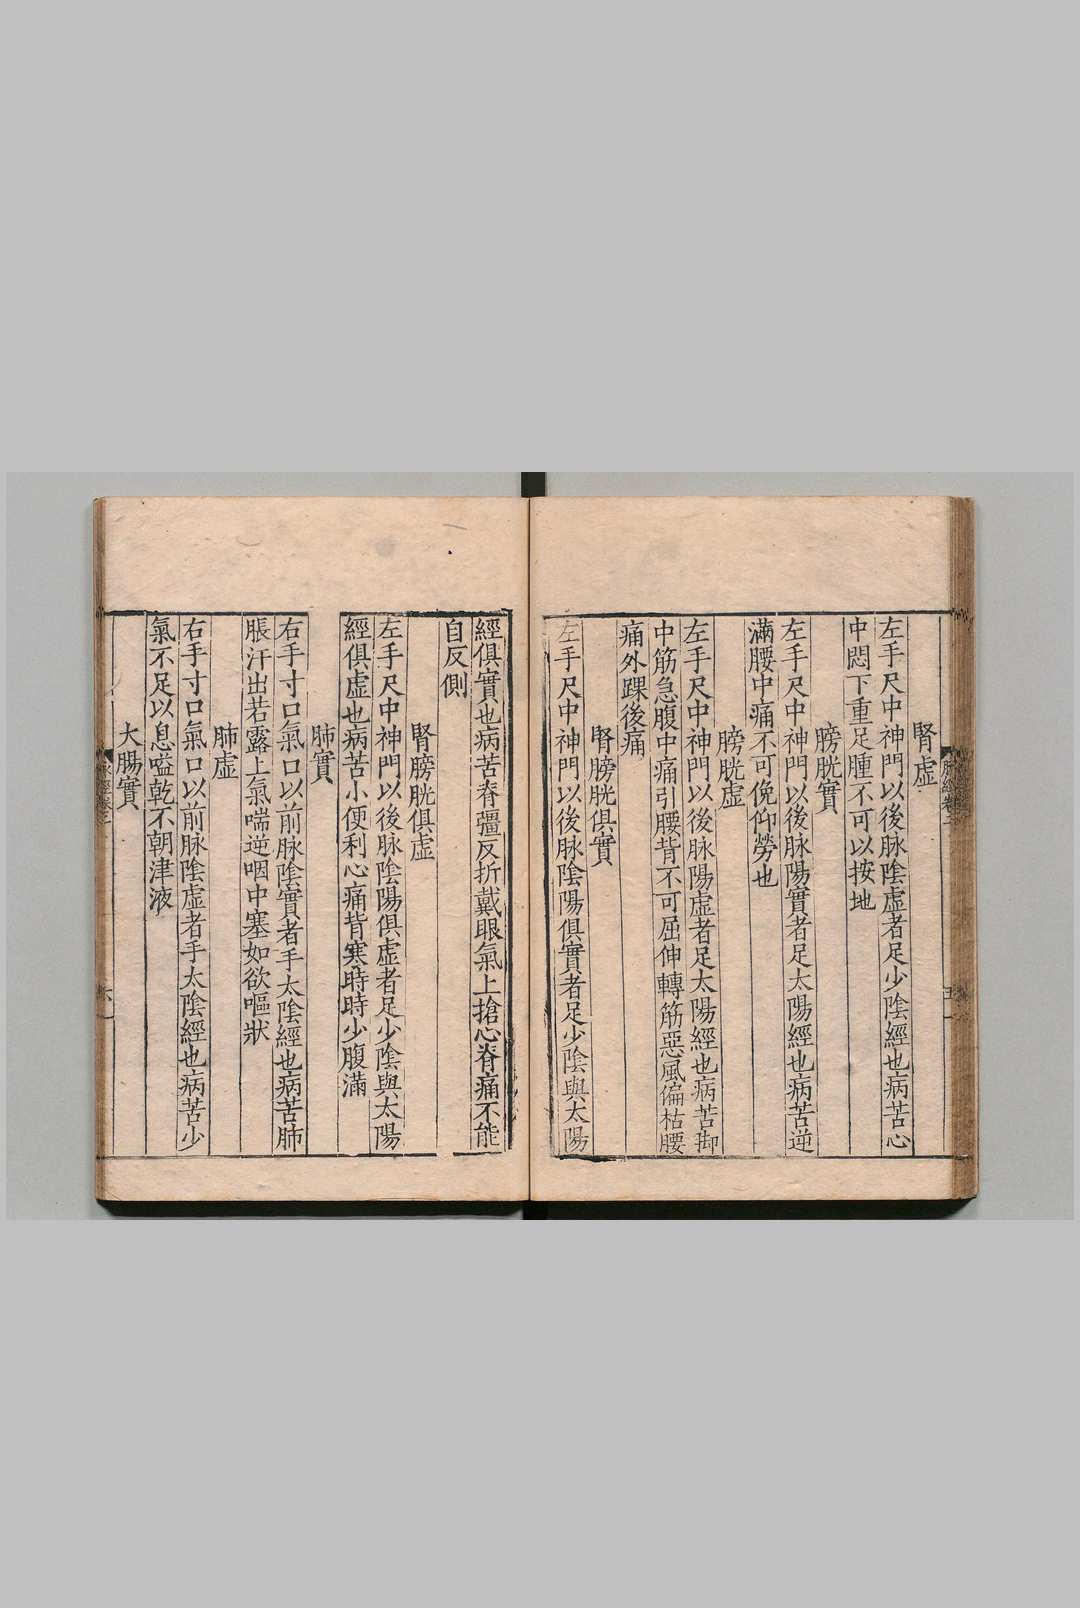 腎虛
左手尺中神門以後脉陰虛者足少陰經也病苦心
中悶下重足腫不可以按地
膀胱實
左手尺中神門以後脉陽實者足太陽經也病苦逆
滿腰中痛不可俛仰勞也
膀胱虛
左手尺中神門以後脉陽虛者足太陽經也病苦脚
中筋急腹中痛引腰背不可屈伸轉筋惡風偏枯腰
痛外踝後痛
腎膀胱俱實
左手尺中神門以後脉陰陽俱實者足少陰與太陽
經俱實也病苦脊彊反折戴眼氣上搶心脊痛不能
自反側
腎膀胱俱虛
左手尺中神門以後脉陰陽俱虛者足少陰與太陽
經俱虛也病苦小便利心痛背寒時時少腹滿
肺實
右手寸口氣口以前脉陰實者手太陰經也病苦肺
脹汗出若露上氣喘逆咽中塞如欲嘔狀
肺虛
右手寸口氣口以前脉陰虛者手太陰經也病苦少
氣不足以息嗌乾不朝津液
大腸實